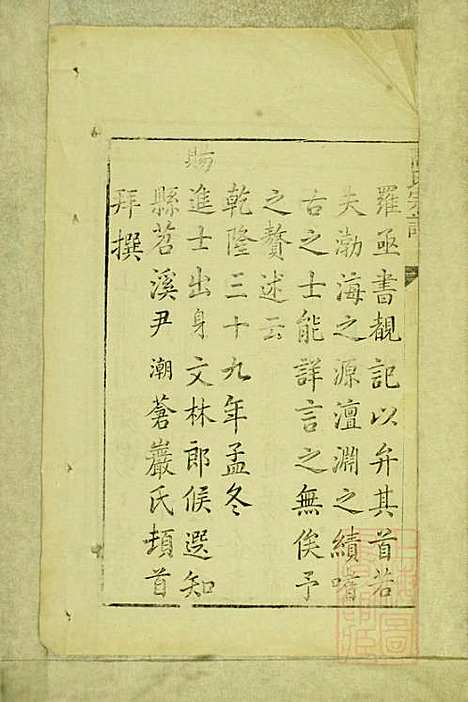 羅亟書覩記以弁其首若
夫渤海之源澶淵之績嗜
古之士能詳言之無俟予
之贅述云
乾隆三十九年孟冬
賜
進士出身文林郎候選知
縣苕溪尹潮蒼巖氏頓首
拜撰